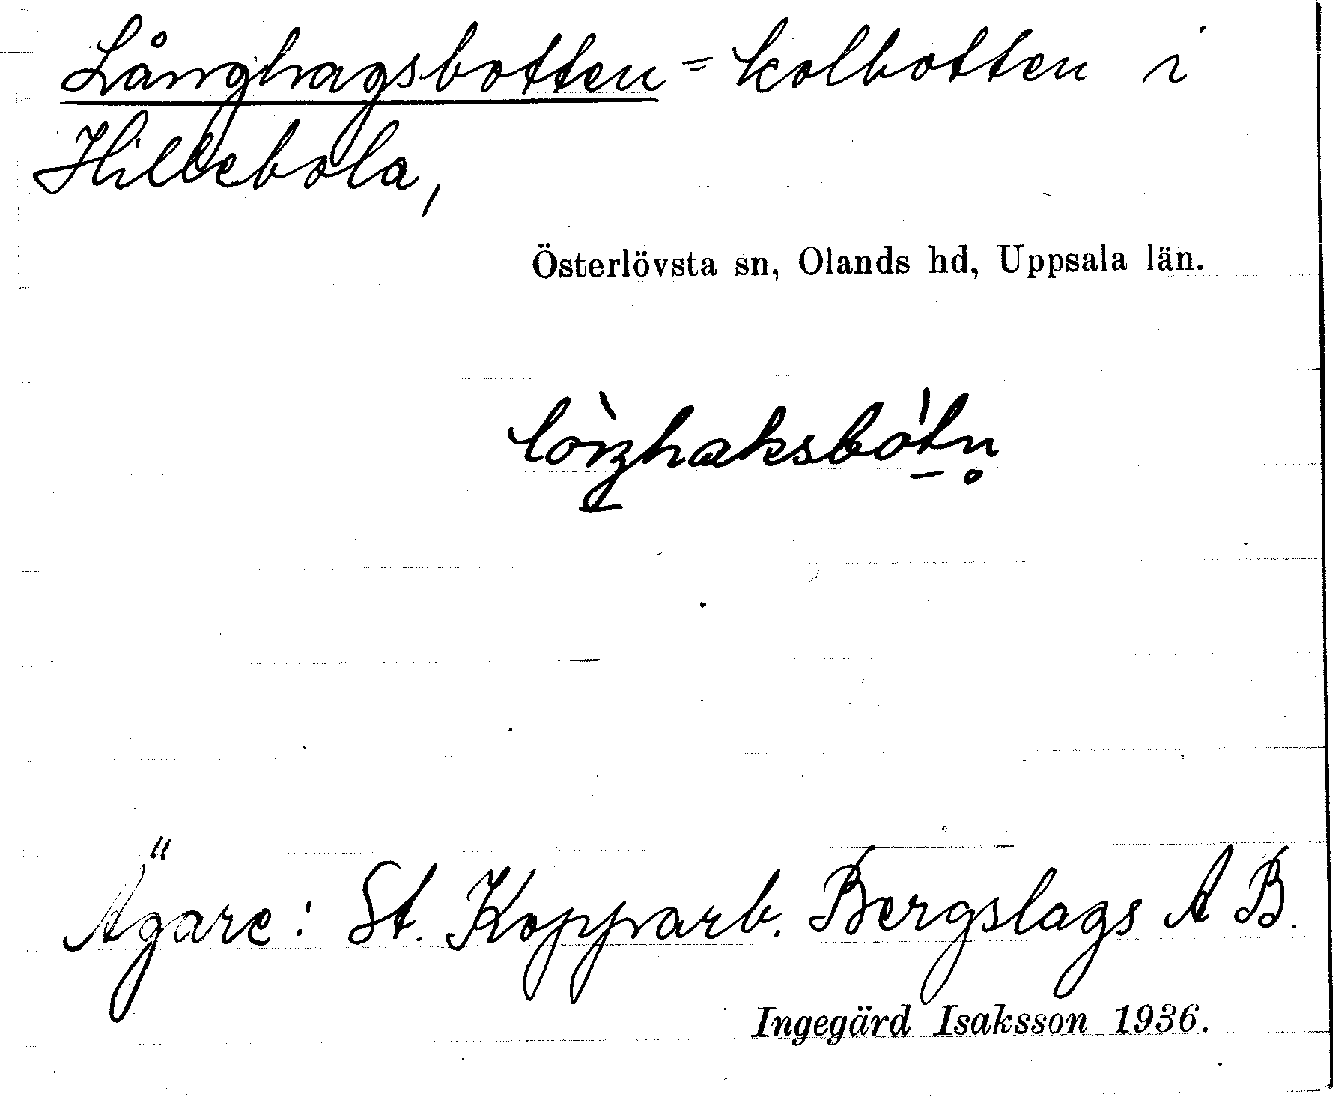 Långhagsbotten = kolbotten i
Hillebola,
Österlövsta sn, Olands hd, Uppsala län.
Ägare: St. Kopparb. Bergslags A B.
Ingegärd Isaksson 1936.